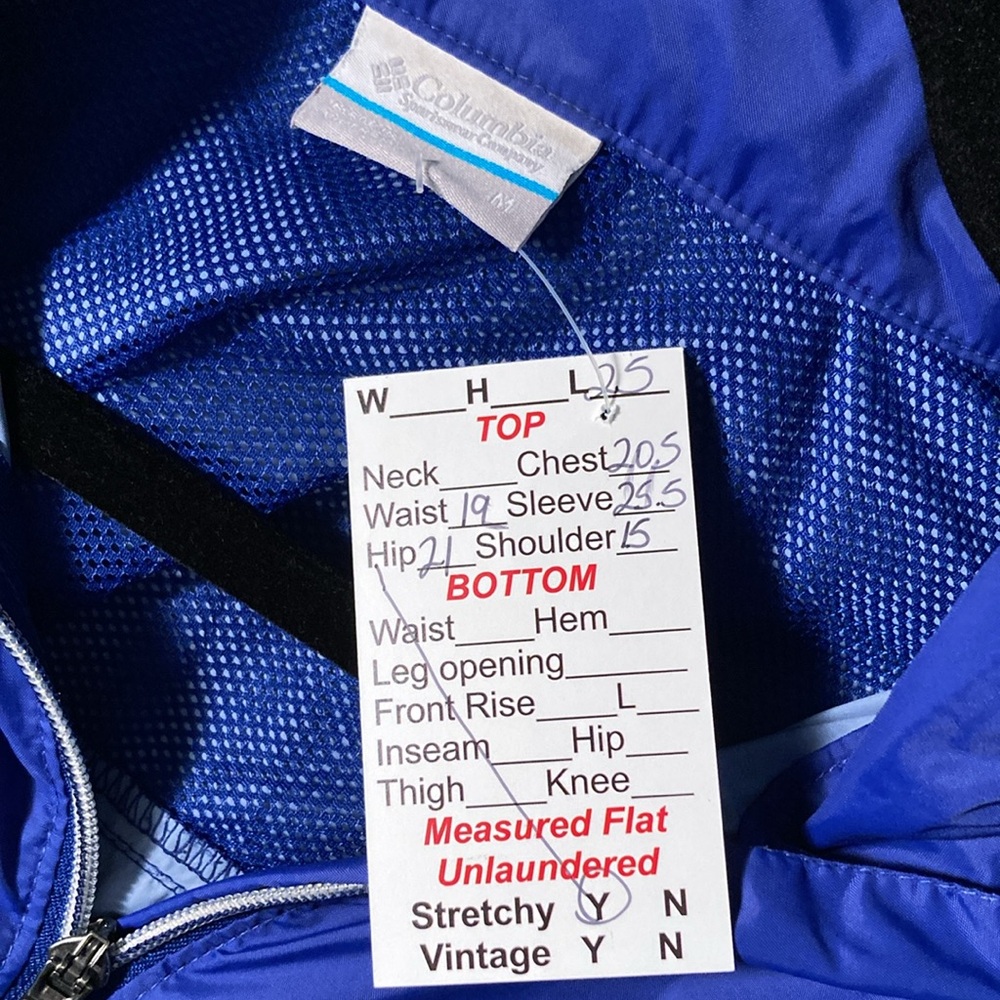 Columbia
Sportswear Company
M
W____H____L 25
TOP
Neck____Chest 20.5
Waist 19 Sleeve 25.5
Hip 21 Shoulder 15
BOTTOM
Waist____Hem____
Leg opening____
Front Rise____L____
Inseam____Hip____
Thigh____Knee____
Measured Flat
Unlaundered
Stretchy Y N
Vintage Y N